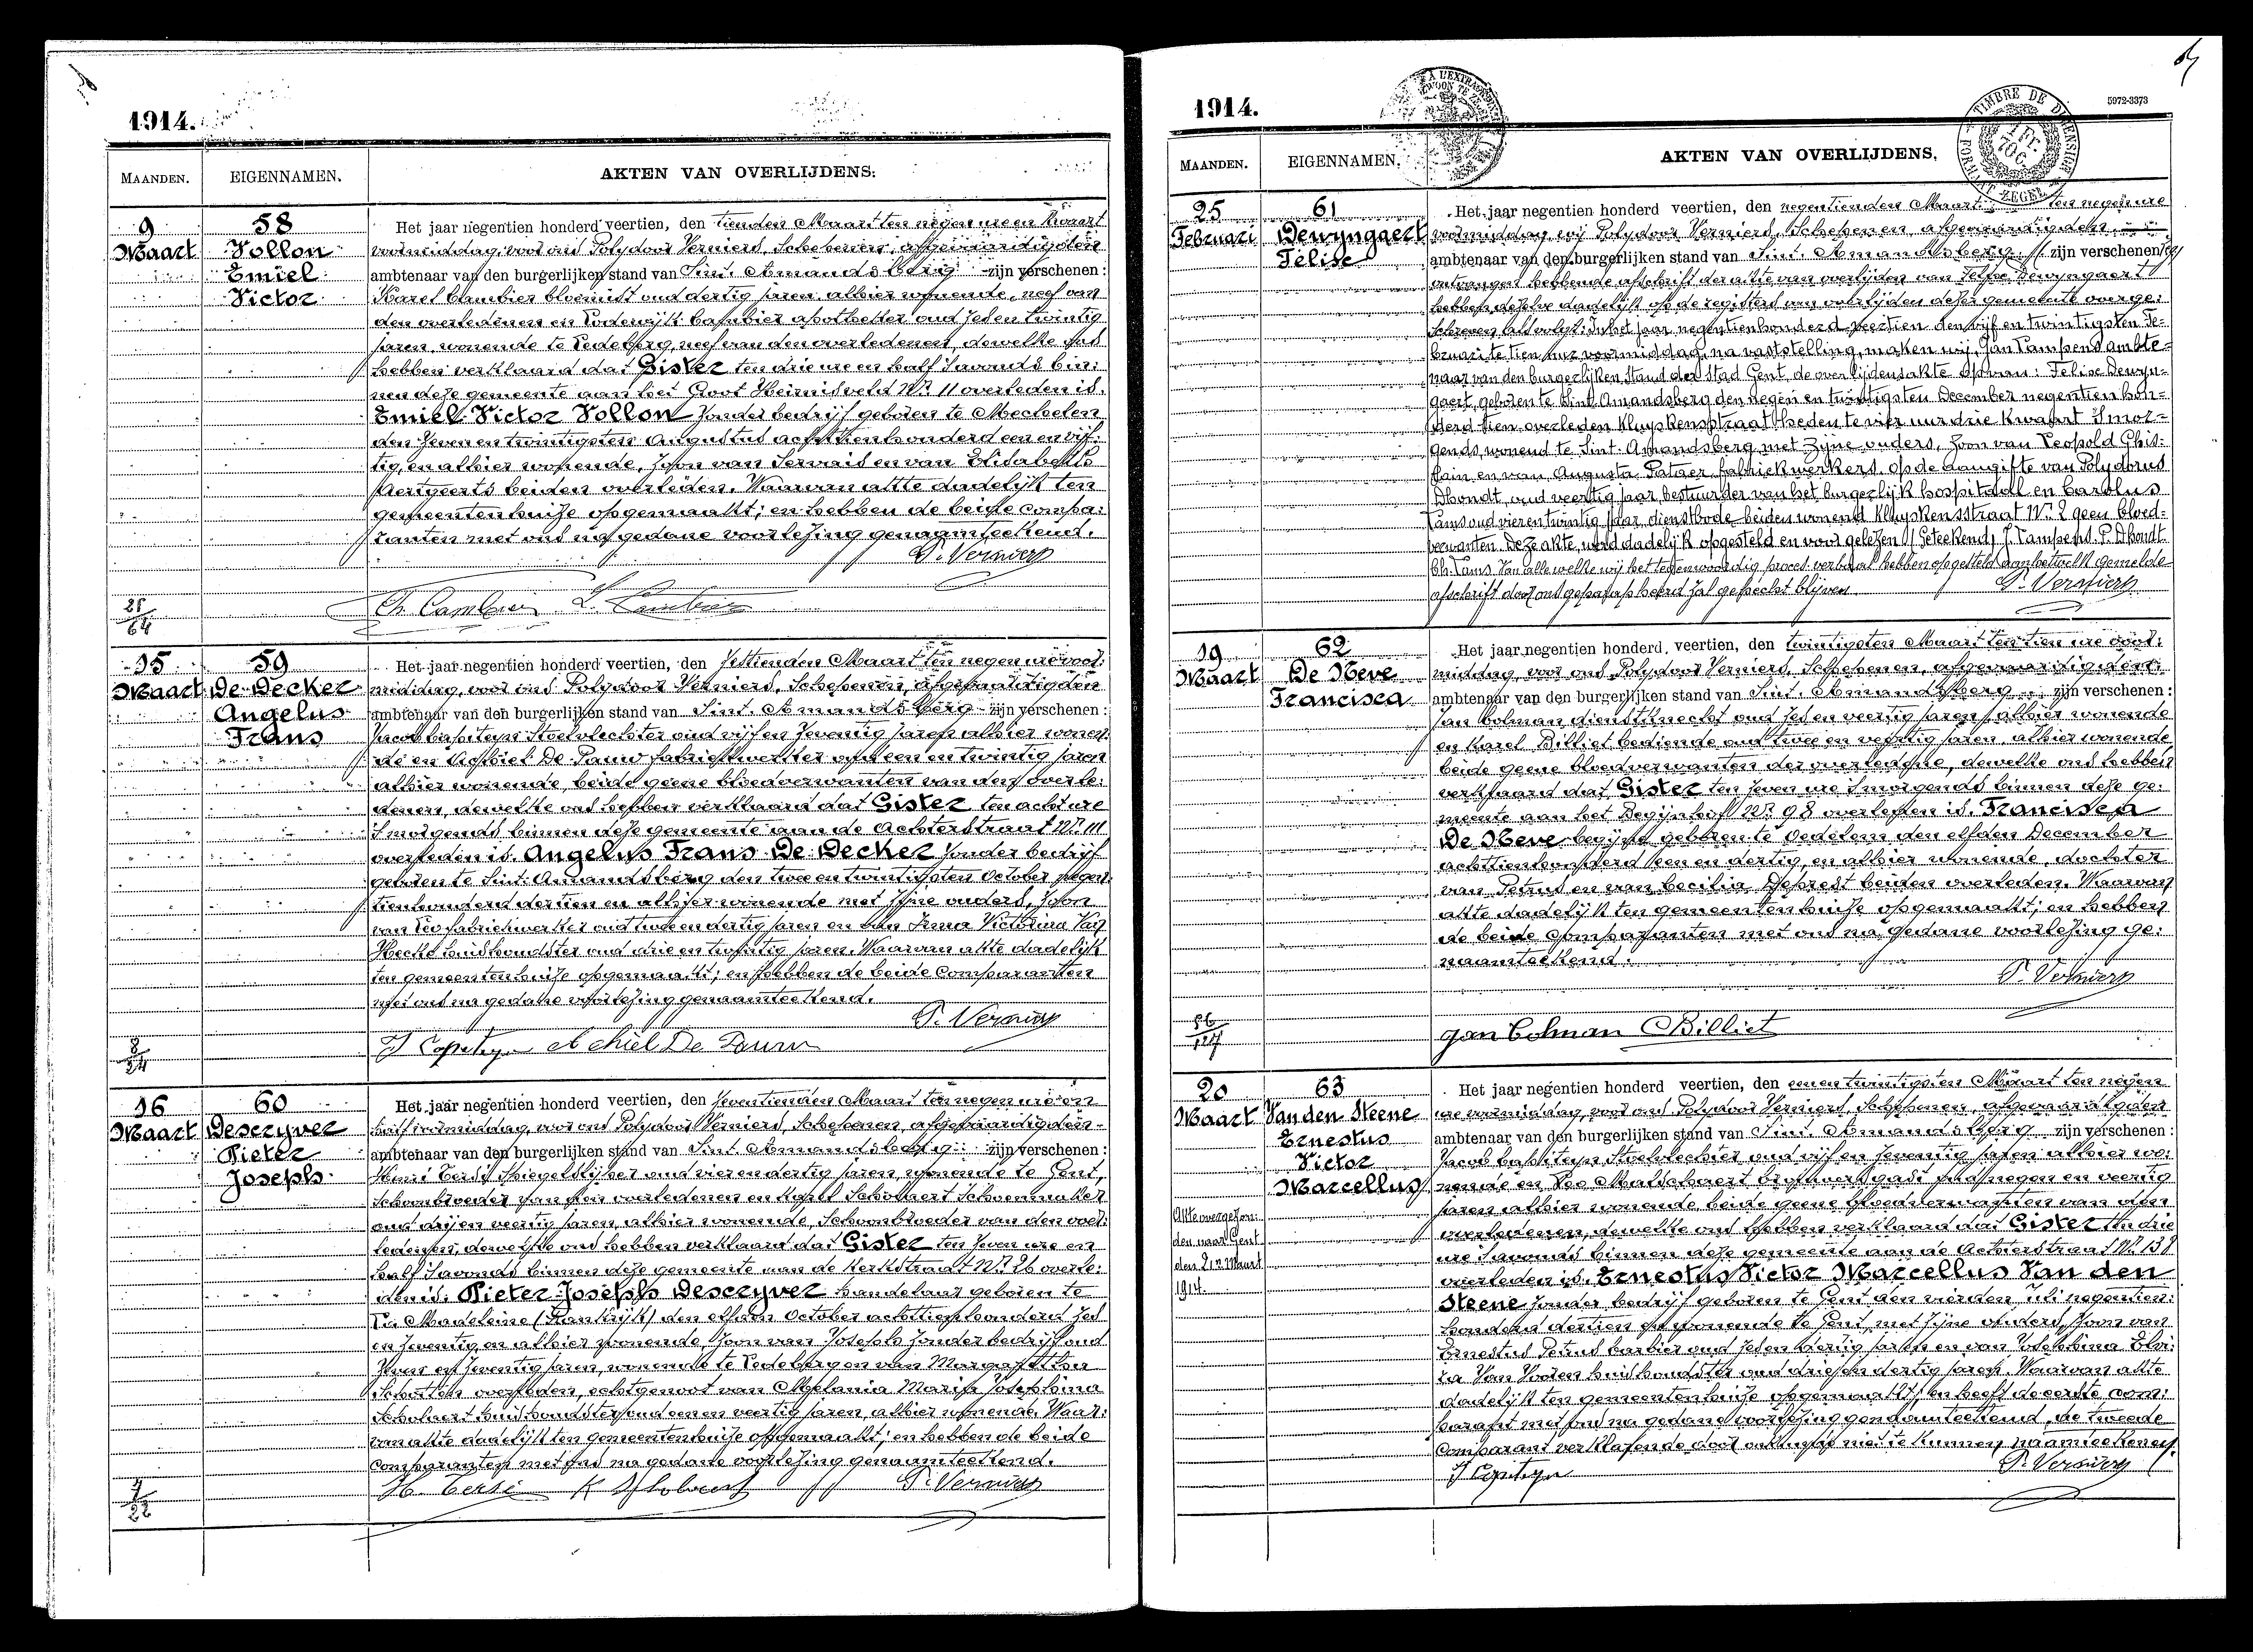 1914.
MAANDEN.
EIGENNAMEN.
AKTEN VAN OVERLIJDENS.
9
Maart
58
Vollon
Emiel
Victor
Het jaar negentien honderd veertien, den tienden Maart ten negen ure en kwaart
voormiddag, voor ons Polydoor Verniers, Schepenen, afgevaardigden
ambtenaar van den burgerlijken stand van Sint-Amandsberg zijn verschenen:
Karel Cambier bloemist oud dertig jaren, alhier wonende, neef van
den overledenen en Lodewijk Cambier apotheker oud zes en twintig
jaren, wonende te Ledeberg, neef van den overledenen, dewelke ons
hebben verklaard dat Gister ten drie ure en half s'avonds bin:
nen deze gemeente aan het Groot Heirnisveld Nr. 11 overleden is.
Emiel Victor Vollon zonder bedrijf geboren te Mechelen
den zeven en twintigsten Augustus achttien honderd een en vijf:
tig, en alhier wonende, zoon van Servais en van Elisabeth
Aertgeerts beiden overleden. Waarvan akte dadelijk ten
gemeentenhuize opgemaakt; en hebben de beide compa:
ranten met ons na gedane voorlezing genaamteekend.
P. Verniers
Ch. Cambier L. Cambier
15
Maart
59
De Decker
Angelus
Frans
Het jaar negentien honderd veertien, den zestienden Maart ten negen ure voor:
middag, voor ons Polydoor Verniers, Schepenen, afgevaardigden
ambtenaar van den burgerlijken stand van Sint-Amandsberg zijn verschenen:
Jacob Capiteyn stoelvlechter oud vijf en zeventig jaren alhier wonen:
de en Achiel De Pauw fabriekwerker oud een en twintig jaren
alhier wonende, beide geene bloedverwanten van den overle:
denen, dewelke ons hebben verklaard dat Gister ten acht ure
s'morgends binnen deze gemeente aan de Achterstraat Nr. 111
overleden is. Angelus Frans De Decker zonder bedrijf
geboren te Sint-Amandsberg den twee en twintigsten October negen
tienhonderd dertien en alhier wonende met zijne ouders, zoon
van Leo fabriekwerker oud twee en dertig jaren en van Irma Victorina Van
Hecke huishoudster oud drie en twintig jaren. Waarvan akte dadelijk
ten gemeentenhuize opgemaakt; en hebben de beide comparanten
met ons na gedane voorlezing genaamteekend.
P. Verniers
J Capiteyn Achiel De Pauw
16
Maart
60
Descryver
Pieter
Joseph
Het jaar negentien honderd veertien, den zeventienden Maart ten negen ure en
half voormiddag, voor ons Polydoor Verniers, Schepenen, afgevaardigden
ambtenaar van den burgerlijken stand van Sint-Amandsberg zijn verschenen:
Henri Cersé spiegelslijper oud vier en dertig jaren, wonende te Gent,
schoonbroeder van den overledenen en Karel Scholaert schoenmaker
oud drij en veertig jaren, alhier wonende, schoonbroeder van den over:
ledenen, dewelke ons hebben verklaard dat Gister ten zeven ure en
half s'avonds binnen deze gemeente aan de Kerkstraat Nr. 26 overle:
den is. Pieter Joseph Descryver handelaar geboren te
La Madeleine (Frankrijk) den elfden October achttien honderd zes
en zeventig en alhier wonende, zoon van Joseph zonder bedrijf oud
en zeventig jaren, wonende te Ledeberg en van
overleden, echtgenoot van Melania Maria Josephina
Scholaert huishoudster oud een en veertig jaren, alhier wonende. Waar:
van akte dadelijk ten gemeentenhuize opgemaakt; en hebben de beide
comparanten met ons na gedane voorlezing genaamteekend.
H. Cersé K Scholaert P. Verniers
1914.
5972-3373
MAANDEN.
EIGENNAMEN.
AKTEN VAN OVERLIJDENS.
TIMBRE DE DIMENSION
25
Februari
61
Dewyngaert
Felise
Het jaar negentien honderd veertien, den negentienden Maart ten negen ure
voormiddag wij Polydoor Verniers, Schepenen afgevaardigden
ambtenaar van den burgerlijken stand van Sint-Amandsberg zijn verschenen
ontvangen hebbende afschrift der akte van overlijden van Felise Dewyngaert
hebben dezelve dadelijk op de registers van overlijden dezer gemeente overge:
schreven als volgt: In het jaar negentienhonderd veertien den vijf en twintigsten Fe-
bruari te tien uur voormiddag, na vaststelling, maken wij, Jan Lampens ambte-
naar van den burgerlijken stand der stad Gent, de overlijdensakte op van: Felise Dewyn-
gaert, geboren te Sint Amandsberg den negen en twintigsten December negentien hon-
derd tien, overleden Kluyskensstraat heden te vier uur drie kwaart s'mor-
gends, wonend te Sint-Amandsberg met zijne ouders, zoon van Leopold Ghis-
lain en van Augusta Pataer, fabriekwerkers, op de aangifte van Polydorus
Dhondt, oud veertig jaar, bestuurder van het burgerlijk hospitaal en Carolus
Tams oud vier en twintig jaar, dienstbode beiden wonend Kluyskensstraat Nr. 2 geen bloed-
verwanten. Deze akte werd dadelijk opgesteld en voor gelezen. (Geteekend) J. Lampens. P. Dhondt
Ch. Tams. Van alle welke wij het tegenwoordig proces verbaal hebben opgesteld aan hetwelk gemelde
afschrift door ons geparapheerd zal gehecht blijven P. Verniers
19
Maart
62
De Neve
Francisca
Het jaar negentien honderd veertien, den twintigsten Maart ten tien ure voor:
middag, voor ons Polydoor Verniers, Schepenen, afgevaardigden
ambtenaar van den burgerlijken stand van Sint-Amandsberg zijn verschenen:
Jan Colman dienstknecht oud zes en veertig jaren, alhier wonende
en Karel Billiet bediende oud twee en veertig jaren, alhier wonende,
beide geene bloedverwanten der overledene, dewelke ons hebben
verklaard dat Gister ten zeven ure s'morgends binnen deze ge:
meente aan het Begijnhof Nr. 98 overleden is. Francisca
De Neve begijn geboren te Oedelem den elfden December
achttienhonderd een en dertig, en alhier wonende, dochter
van Petrus en van Cecilia Deprest beiden overleden. Waarvan
akte dadelijk ten gemeentenhuize opgemaakt; en hebben
de beide comparanten met ons na gedane voorlezing ge:
naamteekend.
P. Verniers
Jan Colman CBilliet
20
Maart
63
Van den Steene
Ernestus
Victor
Marcellus
Akte overgezon:
den naar Gent
den 21n Maart
1914.
Het jaar negentien honderd veertien, den een en twintigsten Maart ten negen
ure voormiddag, voor ons Polydoor Verniers, Schepenen, afgevaardigden
ambtenaar van den burgerlijken stand van Sint-Amandsberg zijn verschenen:
Jacob Capiteyn stoelvlechter oud vijf en zeventig jaren alhier wo:
nende en Leo oud negen en veertig
jaren alhier wonende beide geene bloedverwanten van den
overledenen, dewelke ons hebben verklaard dat Gister ten drie
ure s'avonds binnen deze gemeente aan de Achterstraat Nr. 138
overleden is. Ernestus Victor Marcellus Van den
Steene zonder bedrijf geboren te Gent den vierden Juli negentien:
honderd dertien en wonende te Gent, met zijne ouders, zoon van
Ernestus Petrus barbier oud zes en dertig jaren en van Josephina Elvi:
ra Van Vooren huishoudster oud drie en dertig jaren. Waarvan akte
dadelijk ten gemeentenhuize opgemaakt; en heeft de eerste com:
parant met ons na gedane voorlezing genaamteekend, de tweede
comparant verklarende door onkunde niet te kunnen naamteekenen.
J Capiteyn P. Verniers